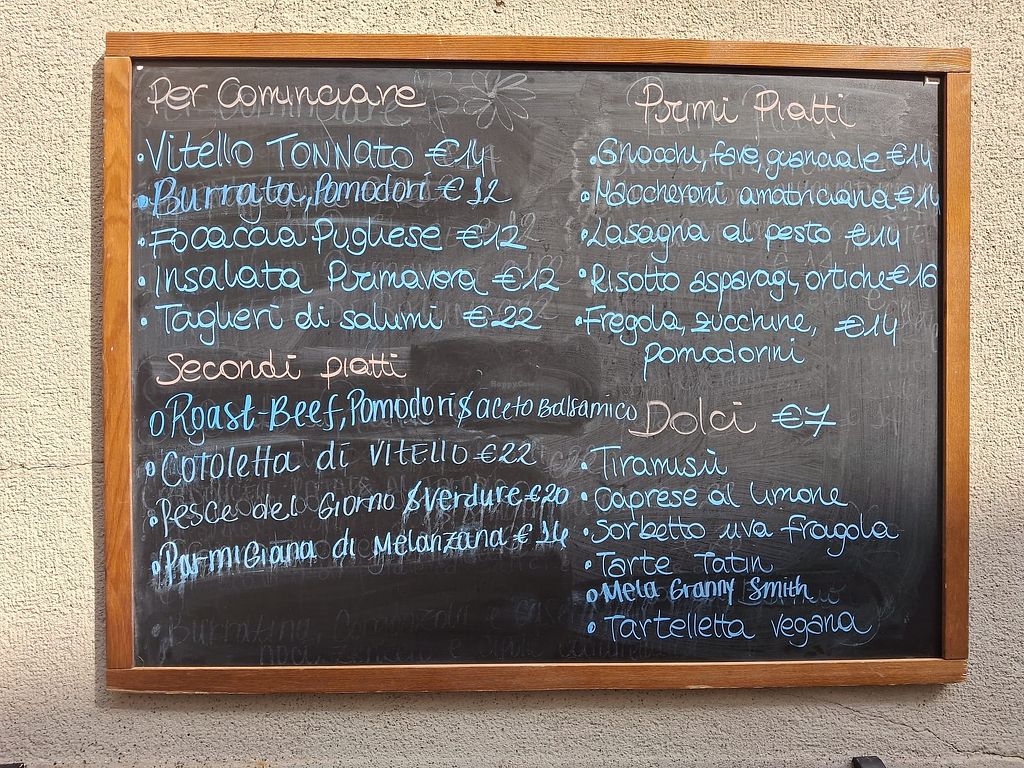 Per Cominciare
• Vitello Tonnato €14
• Burrata, Pomodori €12
• Focaccia Pugliese €12
• Insalata Primavera €12
• Taglieri di salumi €22
Secondi piatti
• Roast-Beef, Pomodori & aceto Balsamico
• Cotoletta di Vitello €22
• Pesce del Giorno & Verdure €20
• ParmiGiana di Melanzana €14
Primi Piatti
• Gnocchi, fave, guanciale €14
• Maccheroni amatriciana €14
• Lasagna al pesto €14
• Risotto asparagi, ortiche €16
• Fregola, zucchine, €14
pomodorini
Dolci €7
• Tiramisù
• Caprese al limone
• Sorbetto uva fragola
• Tarte Tatin
• Mela Granny Smith
• Tartelletta vegana